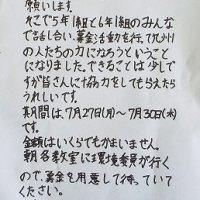 願いします。
そこで5年1組と6年1組のみんな
で話し合い、募金活動を行い、九州
の人たちの力になろうということ
になりました。できることは少しで
すが皆さんに協力をしてもらえたら
うれしいです。
期間は、7月27日(月)～7月30日(木)
です。
金額はいくらでもかまいません。
朝、各教室に環境委員が行く
ので、募金を用意して待っていて
ください。